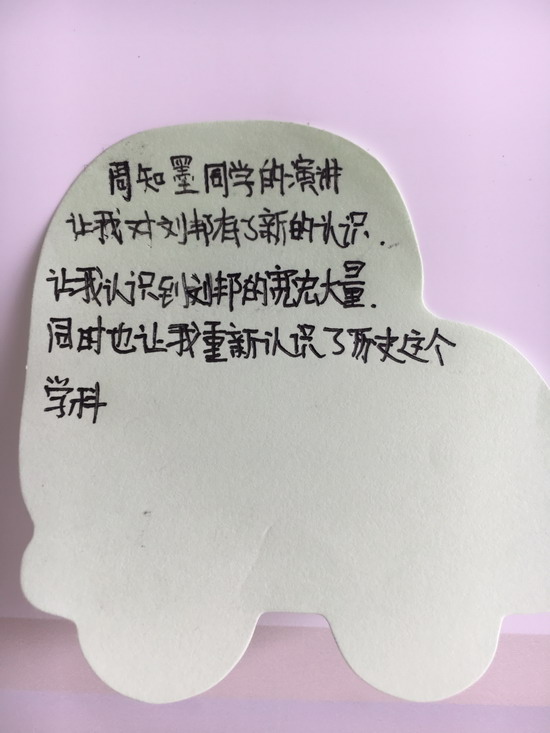 周知墨同学的演讲
让我对刘邦有了新的认识.
让我认识到刘邦的宽宏大量.
同时也让我重新认识了历史这个
学科